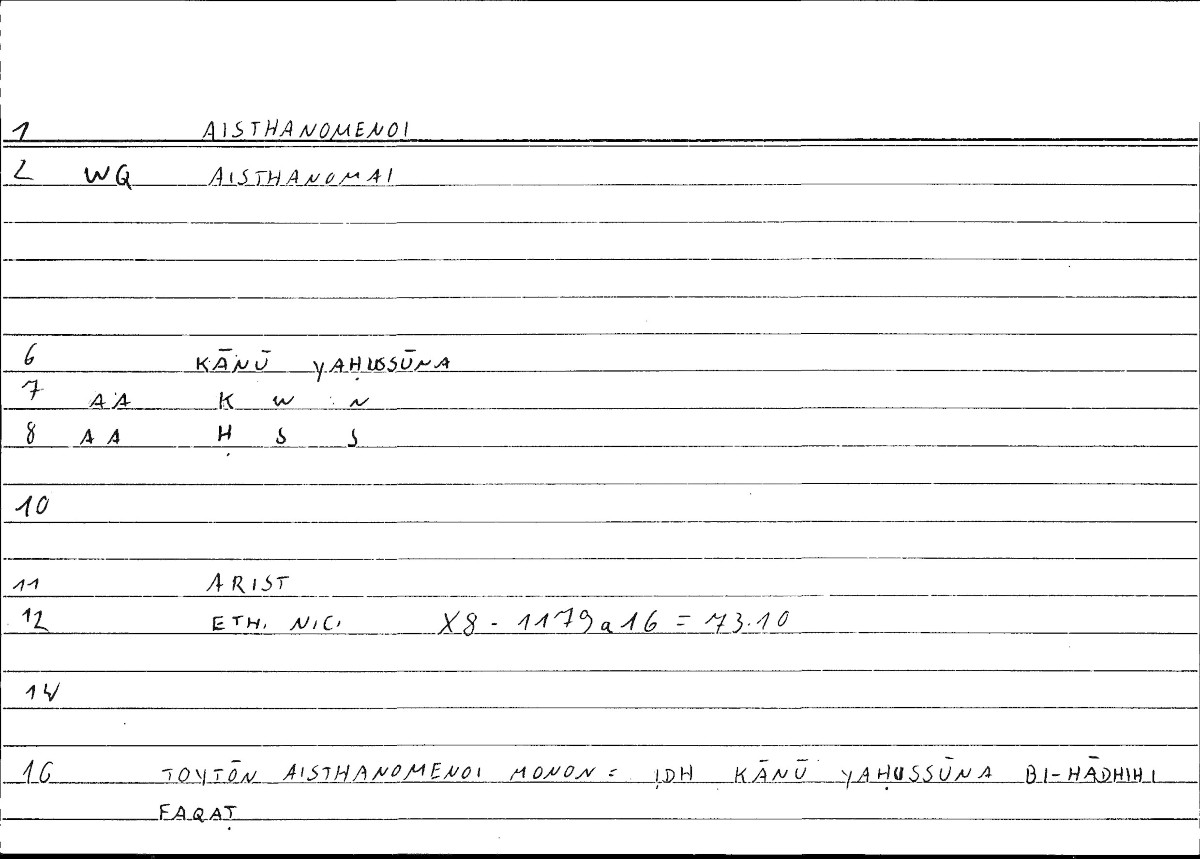 1 AISTHANOMENOI
2 WQ AISTHANOMAI
6 KĀNŪ YAḤUSSŪNA
7 AA K W N
8 AA Ḥ S S
10
11 ARIST
12 ETH. NIC. X8 - 1179a16 = 73.10
14
16 TOYTŌN AISTHANOMENOI MONON = IDH KĀNŪ YAḤUSSŪNA BI-HĀDHIHI
FAQAṬ